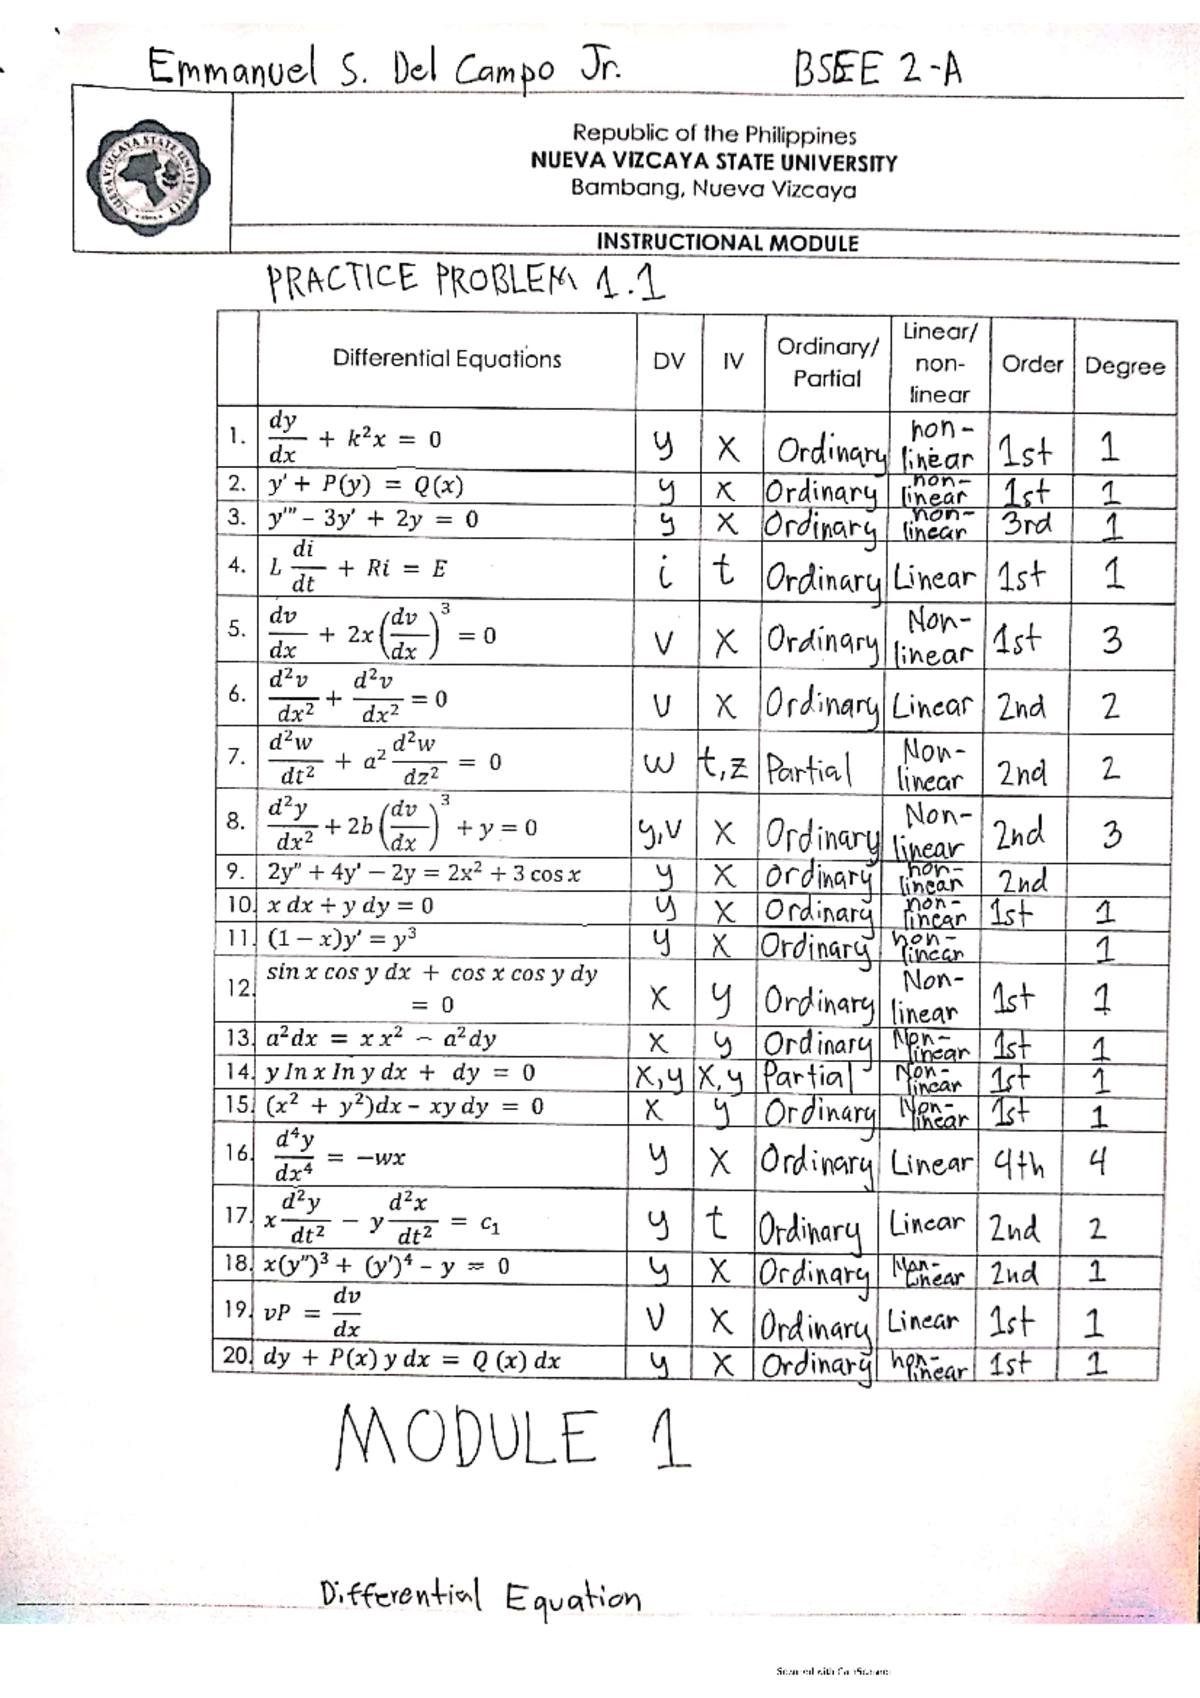 Emmanuel S. Del Campo Jr. BSEE 2-A
NUEVA VIZCAYA STATE UNIVERSITY
Republic of the Philippines
NUEVA VIZCAYA STATE UNIVERSITY
Bambang, Nueva Vizcaya
INSTRUCTIONAL MODULE
PRACTICE PROBLEM 1.1
Differential Equations DV IV Ordinary/ Partial Linear/ non- linear Order Degree
1. dy/dx + k²x = 0 y x Ordinary non-linear 1st 1
2. y' + P(y) = Q(x) y x Ordinary non-linear 1st 1
3. y''' – 3y' + 2y = 0 y x Ordinary non-linear 3rd 1
4. L di/dt + Ri = E i t Ordinary Linear 1st 1
5. dv/dx + 2x(dv/dx)³ = 0 v x Ordinary Non-linear 1st 3
6. d²v/dx² + d²v/dx² = 0 v x Ordinary Linear 2nd 2
7. d²w/dt² + a² d²w/dz² = 0 w t,z Partial Non-linear 2nd 2
8. d²y/dx² + 2b(dv/dx)³ + y = 0 y,v x Ordinary Non-linear 2nd 3
9. 2y" + 4y' – 2y = 2x² + 3 cos x y x Ordinary non-linear 2nd
10. x dx + y dy = 0 y x Ordinary non-linear 1st 1
11. (1 – x)y' = y³ y x Ordinary non-linear 1
12. sin x cos y dx + cos x cos y dy = 0 x y Ordinary Non-linear 1st 1
13. a²dx = x x² – a²dy x y Ordinary Non-linear 1st 1
14. y ln x ln y dx + dy = 0 x,y x,y Partial Non-linear 1st 1
15. (x² + y²)dx – xy dy = 0 x y Ordinary Non-linear 1st 1
16. d⁴y/dx⁴ = –wx y x Ordinary Linear 4th 4
17. x d²y/dt² – y d²x/dt² = c₁ y t Ordinary Linear 2nd 2
18. x(y")³ + (y')⁴ – y = 0 y x Ordinary Non-linear 2nd 1
19. vP = dv/dx v x Ordinary Linear 1st 1
20. dy + P(x) y dx = Q (x) dx y x Ordinary non-linear 1st 1
MODULE 1
Differential Equation
Scanned with CamScanner